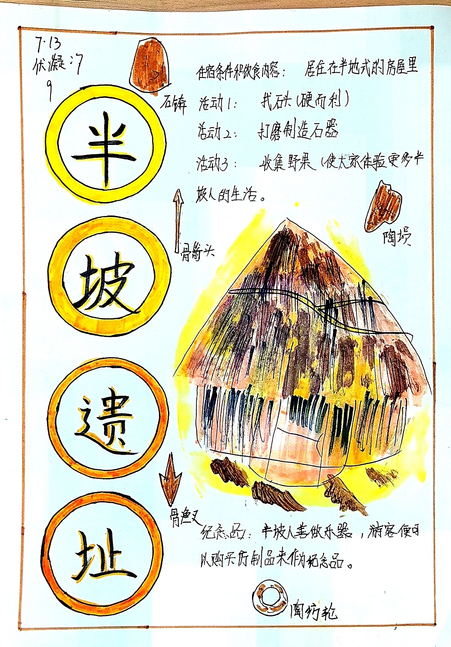 7.13
:7
9
半
坡
遗
址
石锛
住宿条件和饮食内容： 居住在半地式的房屋里
活动1： 找石头(硬而利)
活动2： 打磨制造石器
活动3： 收集野果(使大家体验更多半
坡人的生活。
骨箭头
陶埙
骨鱼叉
纪念品：半坡人喜做乐器，游客便可
以购买仿制品来作为纪念品。
陶纺轮